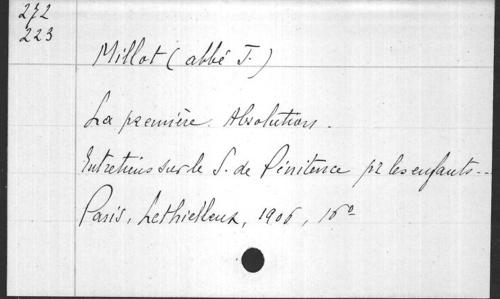 272
223
Millot (abbé J.)
La première Absolution.
Entretiens sur le S. de Pénitence pr les enfants...
Paris, Lethielleux, 1906, 16º